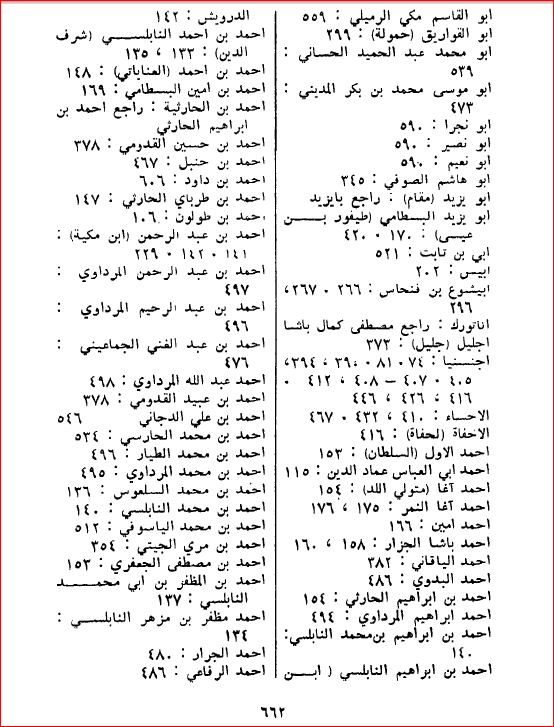 ابو القاسم مكي الرميلي : ٥٥٩
ابو القواريق (حمولة) : ٢٩٩
ابو محمد عبد الحميد الحساني :
٥٣٩
ابو موسى محمد بن بكر المديني :
٤٧٣
ابو نجرا : ٥٩٠
ابو نصير : ٥٩٠
ابو نعيم : ٥٩٠
ابو هاشم الصوفي : ٣٤٥
ابو يزيد (مقام) : راجع بايزيد
ابو يزيد البسطامي (طيفور بــن
عيسى) : ١٧٠ ، ٤٢٠
ابي بن ثابت : ٥٢١
ابيس : ٢٠٢
ابيشوع بن فنحاس : ٢٦٦ ، ٢٦٧،
٢٩٦
اتاتورك : راجع مصطفى كمال باشا
اجليل (جليل) : ٣٧٣
اجنسنيا : ٧٤ ، ٨١ ، ٣٩٠، ٣٩٤،
٤٠٥ ، ٤٠٧ - ٤٠٨ ، ٤١٢ ،
٤١٦ ، ٤٢٦ ، ٤٤٦
الاحساء : ٤١٠ ، ٤٣٢ ، ٤٦٧
الاحفاة (لحفاة) : ٤١٦
احمد الاول (السلطان) : ١٥٣
احمد ابي العباس عماد الدين : ١١٥
احمد آغا (متولي اللد) : ١٥٤
احمد آغا النمر : ١٧٥ ، ١٧٦
احمد امين : ١٦٦
احمد باشا الجزار : ١٥٨ ، ١٦٠
احمد الياقاني : ٣٨٢
احمد البدوي : ٤٨٦
احمد بن ابراهيم الحارثي : ١٥٤
احمد ابراهيم المرداوي : ٤٩٤
احمد بن ابراهيم بن محمد النابلسي:
١٤٠
احمد بن ابراهيم النابلسي ( ابــن
الدرويش : ١٤٢
احمد بن احمد النابلســي (شرف
الدين) : ١٣٣ ، ١٣٥
احمد بن احمد (العناياتي) : ١٤٨
احمد بن امين البسطامي : ١٦٩
احمد بن الحارثية : راجع احمد بن
ابراهيم الحارثي
احمد بن حسين القدومي : ٣٧٨
احمد بن حنبل : ٤٦٧
احمد بن داود : ٦٠٦
احمد بن طرباي الحارثي : ١٤٧
احمد بن طولون : ١٠٦
احمد بن عبد الرحمن (ابن مكية) :
١٤١ ، ١٤٢ ، ٢٢٩
احمد بن عبد الرحمن المرداوي :
٤٩٧
احمد بن عبد الرحيم المرداوي :
٤٩٦
احمد بن عبد الغني الجماعيني :
٤٧٦
احمد عبد الله المرداوي : ٤٩٨
احمد بن عبيد القدومي : ٣٧٨
احمد بن علي الدجاني ٥٤٦
احمد بن محمد الحارسي : ٥٣٤
احمد بن محمد الطيار : ٤٩٦
احمد بن محمد المرداوي : ٤٩٥
احمد بن محمد السلعوس : ١٣٦
احمد بن محمد النابلسي : ١٤٠
احمد بن محمد الياسوفي : ٥١٢
احمد بن مري الجيتي : ٣٥٤
احمد بن مصطفى الجعفري : ١٥٣
احمد بن المظفر بن ابي محمــــد
النابلسي : ١٣٧
احمد مظفر بن مزهر النابلســي :
١٣٤
احمد الجرار : ٤٨٠
احمد الرفاعي : ٤٨٦
٦٦٢